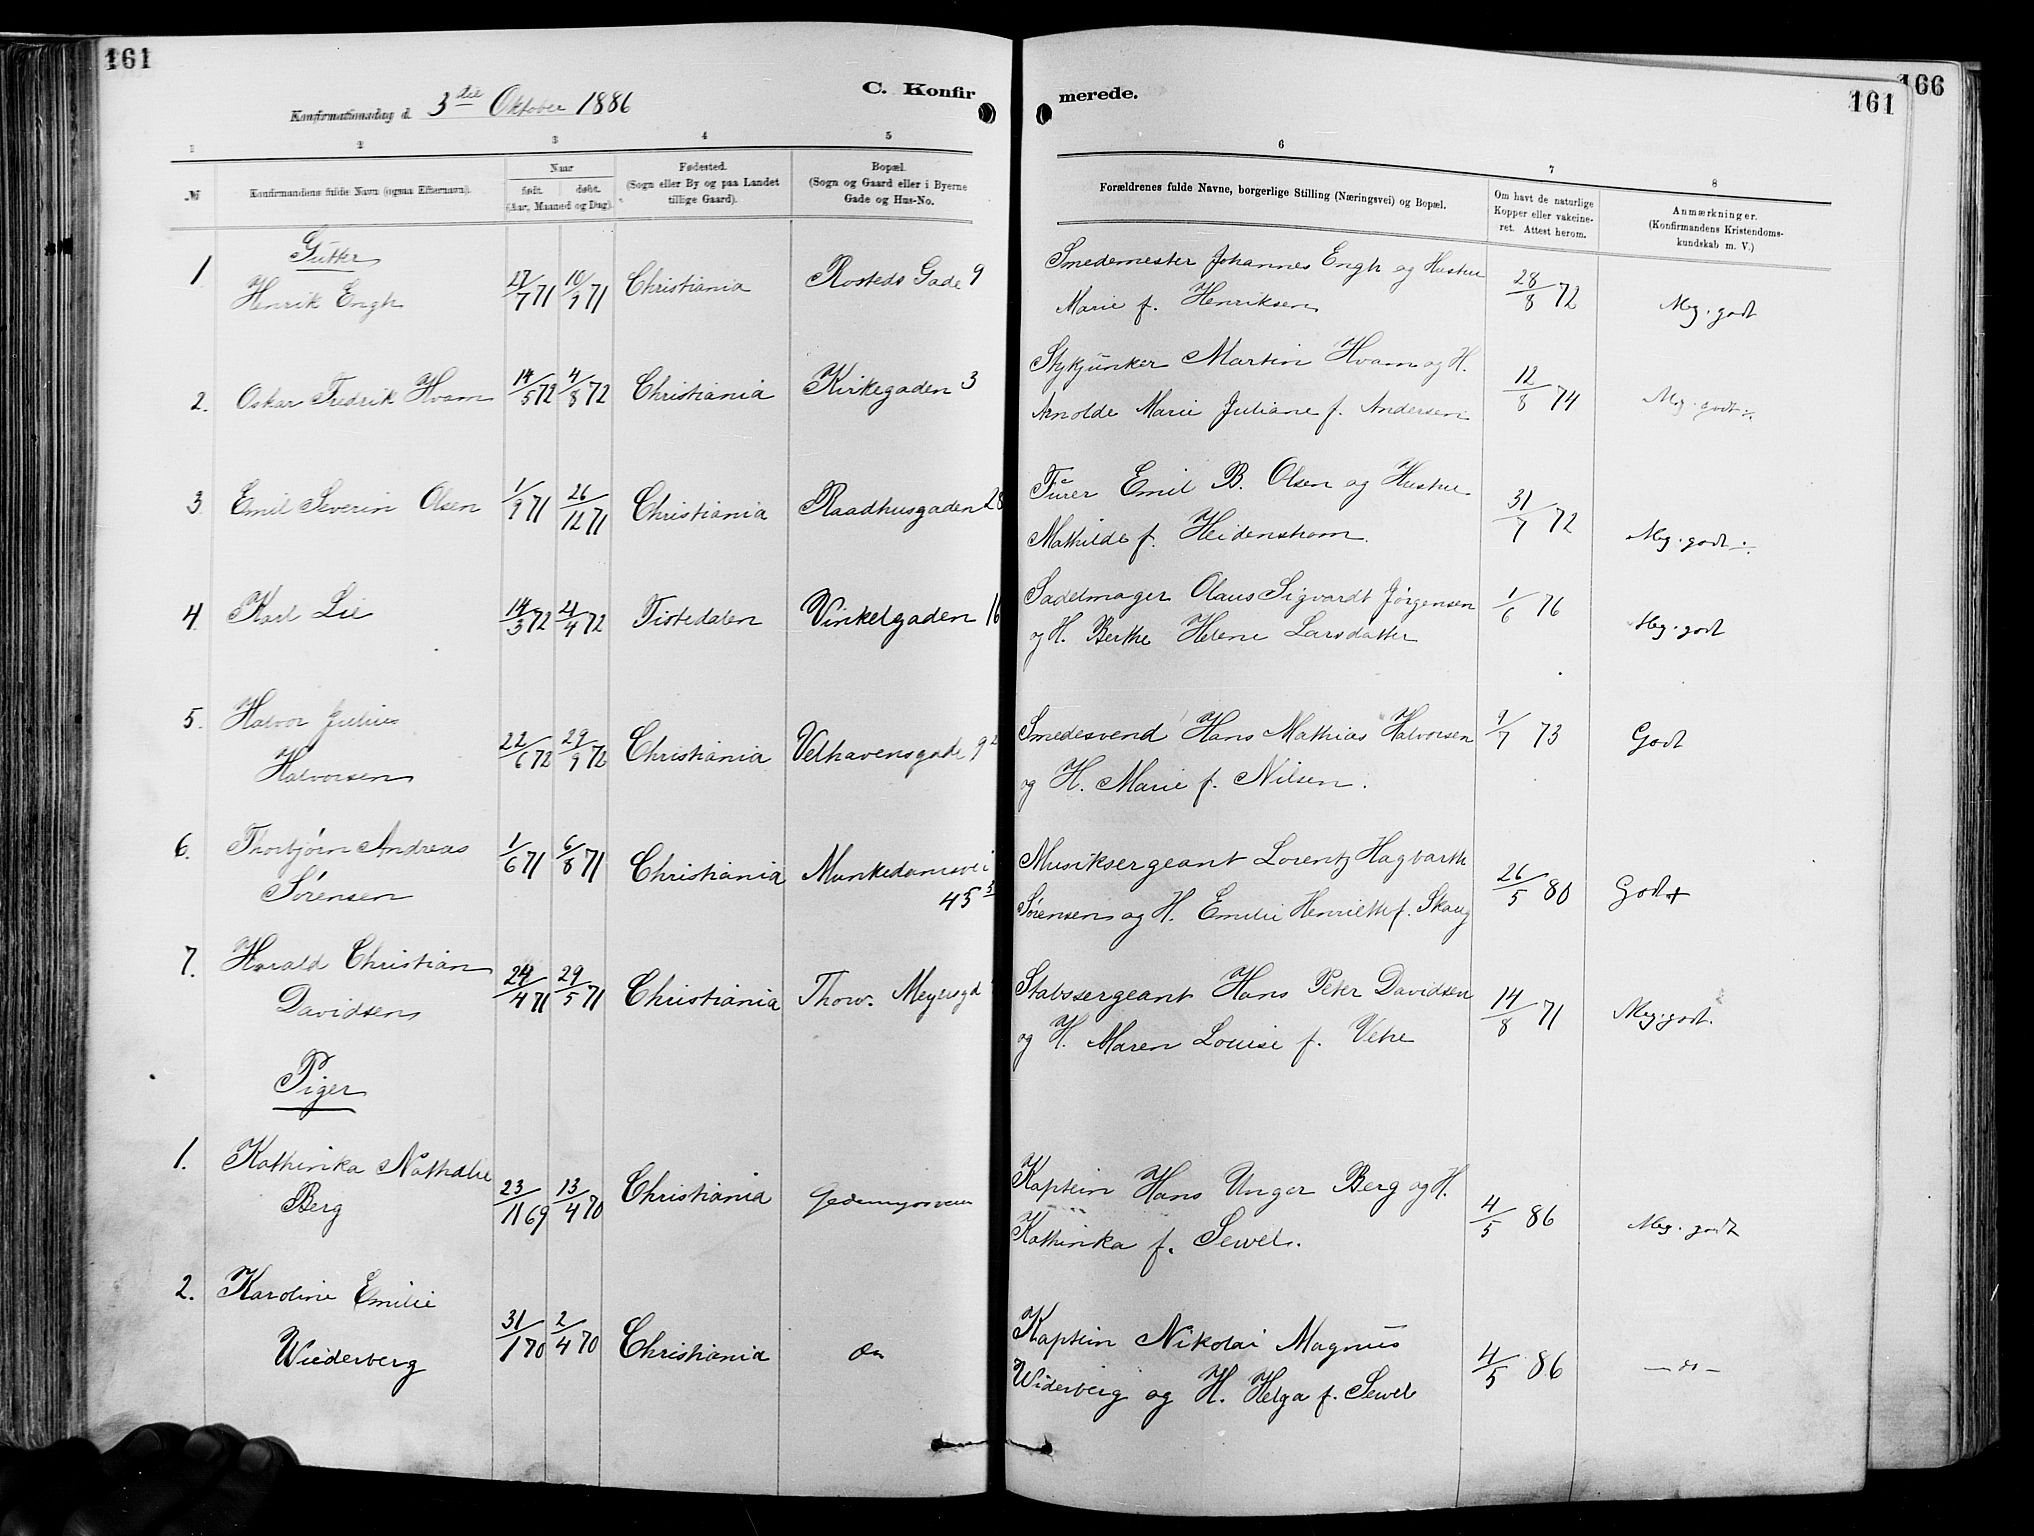 161
C. Konfir
merede.
166
161
Konfirmationsdag d. 3die Oktober 1886
1 2 3 4 5 6 7 8
№
Konfirmandens fulde Navn (ogsaa Efternavn).
Naar
født. døbt.
(Aar, Maaned og Dag).
Fødested.
(Sogn eller By og paa Landet
tillige Gaard).
Bopæl.
(Sogn og Gaard eller i Byerne
Gade og Hus-No.
Forældrenes fulde Navne, borgerlige Stilling (Næringsvei) og Bopæl.
Om havt de naturlige
Kopper eller vakcine-
ret. Attest herom.
Anmærkninger.
(Konfirmandens Kristendoms-
kundskab m. V.)
Gutter
1 Henrik Engh 27/7 71 10/9 71 Christiania Rosteds Gade 9 Smedemester Johannes Engh og Hustru
Marie f. Henriksen 28/8 72 Meg. godt
2. Oskar Fredrik Hvam 14/5 72 4/8 72 Christiania Kirkegaden 3 Stykjunker Martin Hvam og H.
Arnolde Marie Juliane f. Andersen 12/8 74 Meg. godt ÷
3. Emil Severin Olsen 1/9 71 26/12 71 Christiania Raadhusgaden 28 Furer Emil B. Olsen og Hustru
Mathilde f. Heidenstrom. 31/7 72 Meg. godt ÷
4. Karl Lie 14/3 72 21/4 72 Tistedalen Vinkelgaden 16 Sadelmager Olaus Sigvardt Jørgensen
og H. Berthe Helene Larsdatter 1/6 76 Meg. godt
5. Halvor Julius
Halvorsen 22/6 72 29/9 72 Christiania Velhavensgade 9 2 Smedesvend Hans Mathias Halvorsen
og H. Marie f. Nilsen. 9/7 73 Godt
6. Thorbjørn Andreas
Sørensen 1/6 71 6/8 71 Christiania Munkedamsvei
45 3 Musiksergeant Lorentz Hagbarth
Sørensen og H. Emilie Henriette f. Skaug 26/5 80 Godt +
7. Harald Christian
Davidsen 24/4 71 29/5 71 Christiania Thorv. Meyersgd Stabssergeant Hans Peter Davidsen
og H. Maren Louise f. Vehe 14/8 71 Meg. godt.
Piger
1. Kathinka Nathalie
Berg 23/11 69 13/4 70 Christiania Kaptein Hans Unger Berg og H.
Kathinka f. Sewel. 4/5 86 Meg. godt
2. Karoline Emilie
Wiederberg 31/1 70 2/4 70 Christiania do Kaptein Nikolai Magnus
Widerberg og H. Helga f. Sewel 4/5 86 — do —